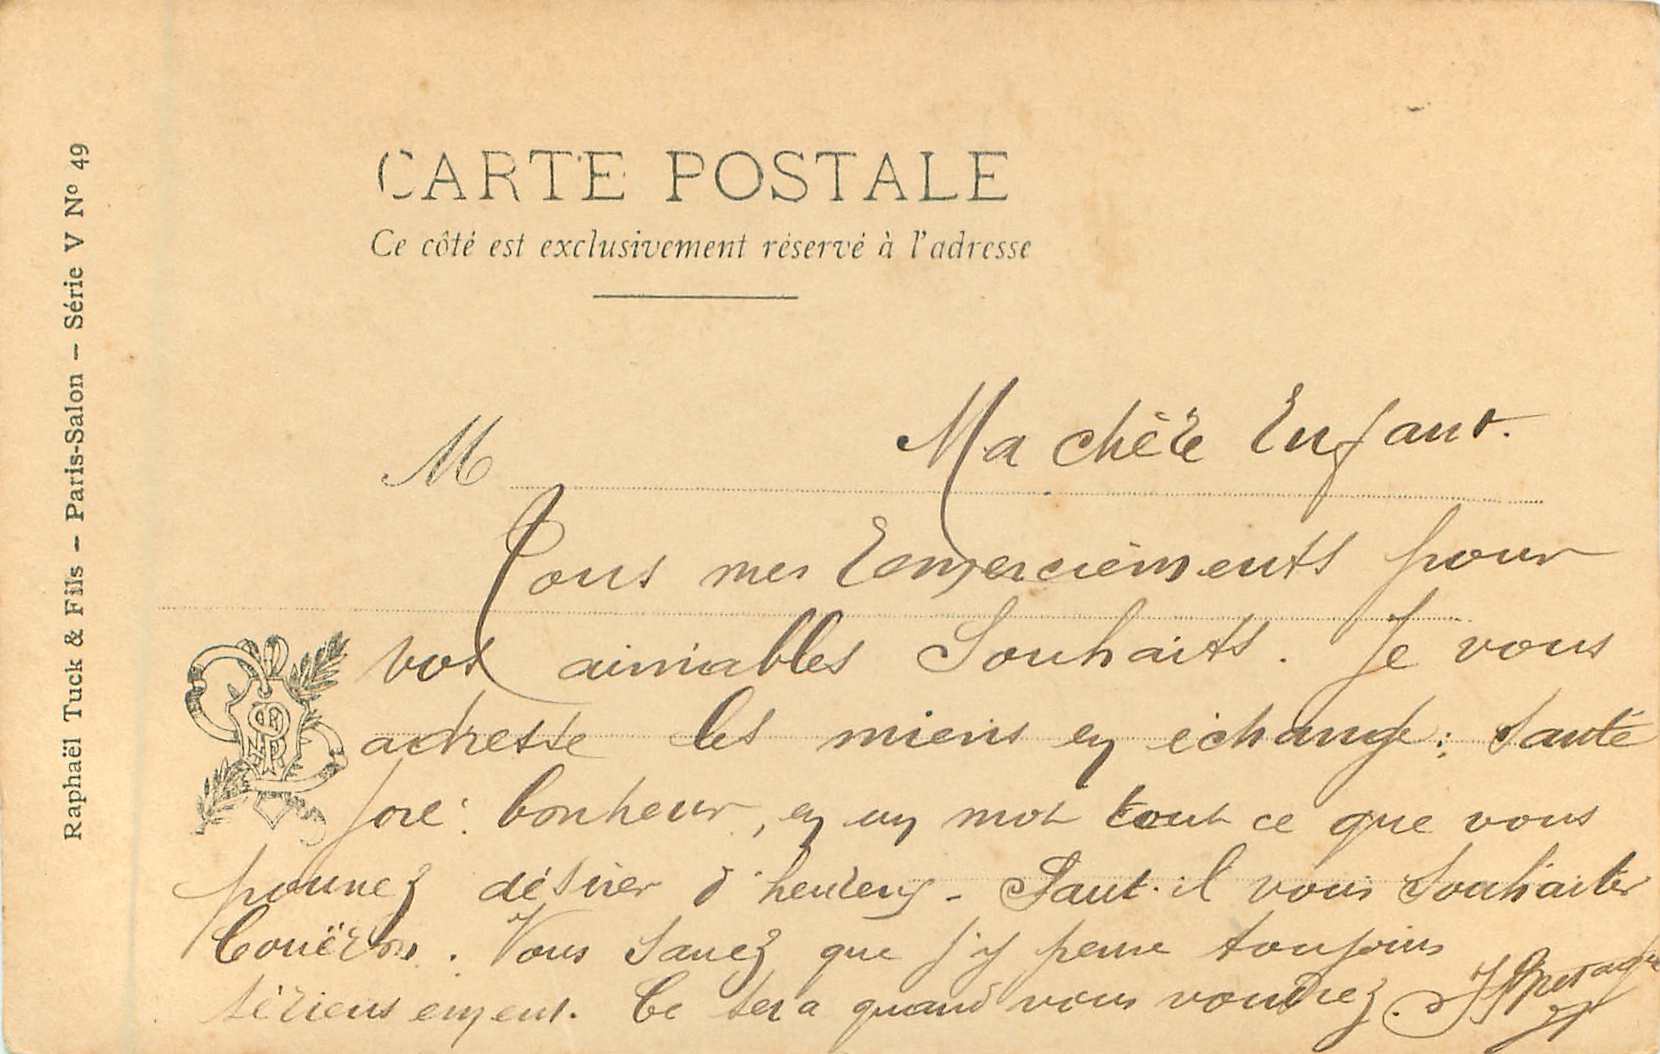 CARTE POSTALE
Ce côté est exclusivement réservé à l'adresse
Raphaël Tuck & Fils – Paris-Salon – Série V Nº 49
M
Ma chère Enfant.
Tous mes remerciements pour
vos aimables souhaits. Je vous
adresse les miens en échange: santé
joie: bonheur, en un mot tout ce que vous
pouvez désirer d'heureux - Faut-il vous souhaiter
Couëron. Vous savez que j'y pense toujours
sérieusement. Ce sera quand vous voudrez.